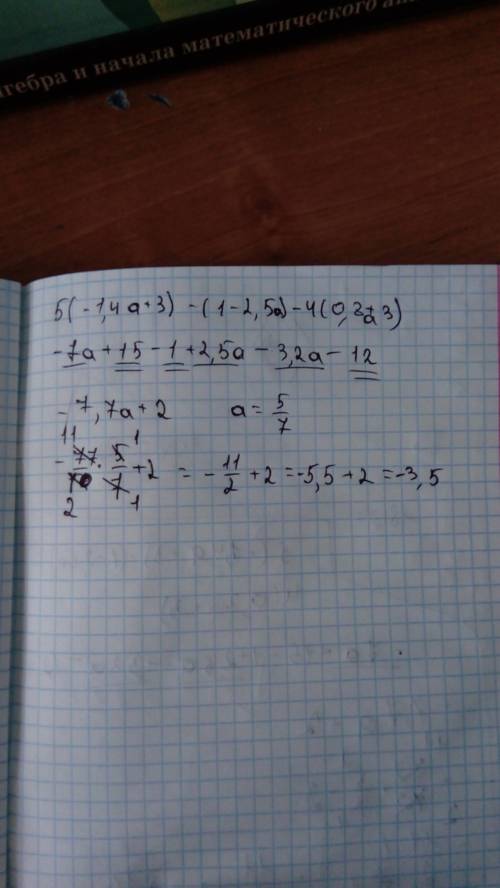 алгебра и начала математического ана
5(-1,4a+3) -(1-2,5a)-4(0,8a+3)
-7a+15-1+2,5a-3,2a-12
-7,7a+2 a=5/7
-77/10·5/7+2 = -11/2+2=-5,5+2=-3,5
11 1
2 1